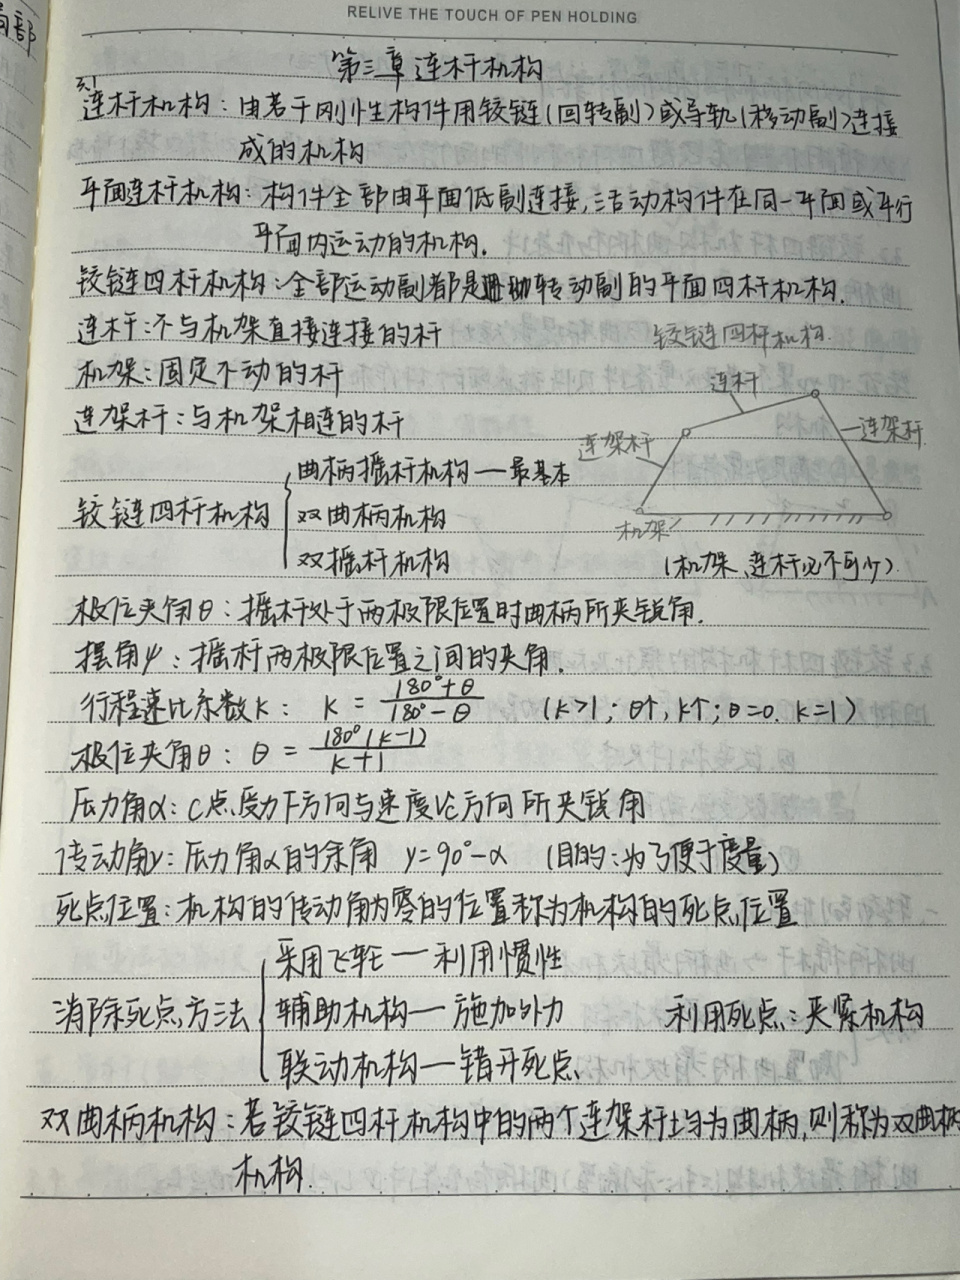 RELIVE THE TOUCH OF PEN HOLDING
部
第三章 连杆机构
3.1
连杆机构：由若干刚性构件用铰链(回转副)或导轨(移动副)连接
成的机构
平面连杆机构：构件全部由平面低副连接,活动构件在同一平面或平行
平面内运动的机构.
铰链四杆机构：全部运动副都是转动副的平面四杆机构.
连杆：不与机架直接连接的杆
铰链四杆机构.
机架：固定不动的杆
连杆
连架杆：与机架相连的杆
连架杆
连架杆
铰链四杆机构
曲柄摇杆机构—最基本
双曲柄机构
双摇杆机构
机架
(机架、连杆必不可少)
极位夹角θ：摇杆处于两极限位置时曲柄所夹锐角.
摆角ψ：摇杆两极限位置之间的夹角.
行程速比系数K： K = (180°+θ)/(180°-θ) (K>1; θ↑, K↑; θ=0. K=1)
极位夹角θ：θ = 180°(K-1)/(K+1)
压力角α：C点受力F方向与速度Vc方向所夹锐角
传动角γ：压力角α的余角 γ=90°-α (目的：为了便于度量)
死点位置：机构的传动角为零的位置称为机构的死点位置
消除死点方法
采用飞轮—利用惯性
辅助机构—施加外力
联动机构—错开死点
利用死点：夹紧机构
双曲柄机构：若铰链四杆机构中的两个连架杆均为曲柄,则称为双曲柄
机构.